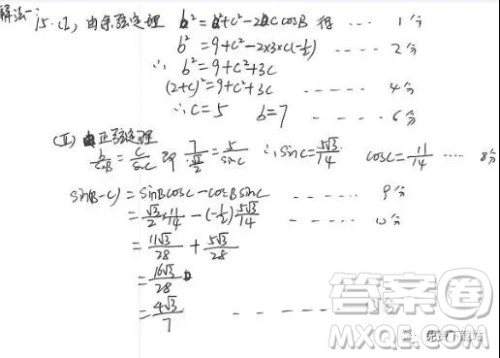 解法一 15.(I) 由余弦定理 b²=a²+c²-2ac cosB 得 ---- 1分
b²=9+c²-2×3×c(-½) ---- 2分
∴ b²=9+c²+3c
(2+c)²=9+c²+3c ---- 4分
∴c=5 b=7 ---- 6分
(II) 由正弦定理
b/sinB=c/sinC 即 7/(√3/2)=5/sinC ∴sinC=5√3/14 cosC=11/14 ---- 8分
sin(B-C)=sinBcosC-cosBsinC ---- 9分
=√3/2×11/14-(-½)5√3/14 ---- 10分
=11√3/28+5√3/28
=16√3/28
=4√3/7 ----
答案圈
MXQE.COM